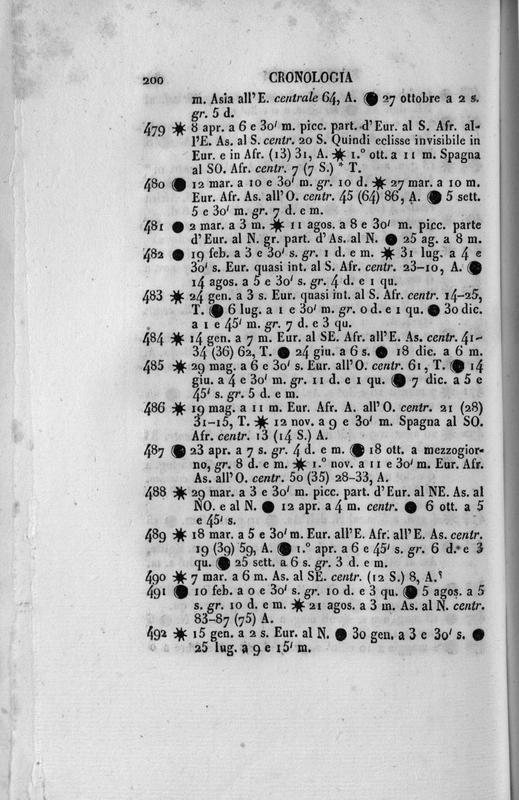 200 CRONOLOGIA
m. Asia all'E. centrale 64, A. ● 27 ottobre a 2 s.
gr. 5 d.
479 ✷ 8 apr. a 6 e 30′ m. picc. part. d'Eur. al S. Afr. al-
l'E. As. al S. centr. 20 S. Quindi eclisse invisibile in
Eur. e in Afr. (13) 31, A. ✷ 1.° ott. a 11 m. Spagna
al SO. Afr. centr. 7 (7 S.) * T.
480 ● 12 mar. a 10 e 30′ m. gr. 10 d. ✷ 27 mar. a 10 m.
Eur. Afr. As. all'O. centr. 45 (64) 86, A. ● 5 sett.
5 e 30′ m. gr. 7 d. e m.
481 ● 2 mar. a 3 m. ✷ 11 agos. a 8 e 30′ m. picc. parte
d'Eur. al N. gr. part. d'As. al N. ● 25 ag. a 8 m.
482 ● 19 feb. a 3 e 30′ s. gr. 1 d. e m. ✷ 31 lug. a 4 e
30′ s. Eur. quasi int. al S. Afr. centr. 23-10, A. ●
14 agos. a 5 e 30′ s. gr. 4 d. e 1 qu.
483 ✷ 24 gen. a 3 s. Eur. quasi int. al S. Afr. centr. 14-25,
T. ● 6 lug. a 1 e 30′ m. gr. 0 d. e 1 qu. ● 30 dic.
a 1 e 45′ m. gr. 7 d. e 3 qu.
484 ✷ 14 gen. a 7 m. Eur. al SE. Afr. all'E. As. centr. 41-
34 (36) 62, T. ● 24 giu. a 6 s. ● 18 dic. a 6 m.
485 ✷ 29 mag. a 6 e 30′ s. Eur. all'O. centr. 61, T. ● 14
giu. a 4 e 30′ m. gr. 11 d. e 1 qu. ● 7 dic. a 5 e
45′ s. gr. 5 d. e m.
486 ✷ 19 mag. a 11 m. Eur. Afr. A. all'O. centr. 21 (28)
31-15, T. ✷ 12 nov. a 9 e 30′ m. Spagna al SO.
Afr. centr. 13 (14 S.) A.
487 ● 23 apr. a 7 s. gr. 4 d. e m. ● 18 ott. a mezzogior-
no, gr. 8 d. e m. ✷ 1.° nov. a 11 e 30′ m. Eur. Afr.
As. all'O. centr. 50 (35) 28-33, A.
488 ✷ 29 mar. a 3 e 30′ m. picc. part. d'Eur. al NE. As. al
NO. e al N. ● 12 apr. a 4 m. centr. ● 6 ott. a 5
e 45′ s.
489 ✷ 18 mar. a 5 e 30′ m. Eur. all'E. Afr. all'E. As. centr.
19 (39) 59, A. ● 1.° apr. a 6 e 45′ s. gr. 6 d. e 3
qu. ● 25 sett. a 6 s. gr. 3 d. e m.
490 ✷ 7 mar. a 6 m. As. al SE. centr. (12 S.) 8, A.
491 ● 10 feb. a 0 e 30′ s. gr. 10 d. e 3 qu. ● 5 agos. a 5
s. gr. 10 d. e m. ✷ 21 agos. a 3 m. As. al N. centr.
83-87 (75) A.
492 ✷ 15 gen. a 2 s. Eur. al N. ● 30 gen. a 3 e 30′ s. ●
25 lug. a 9 e 15′ m.